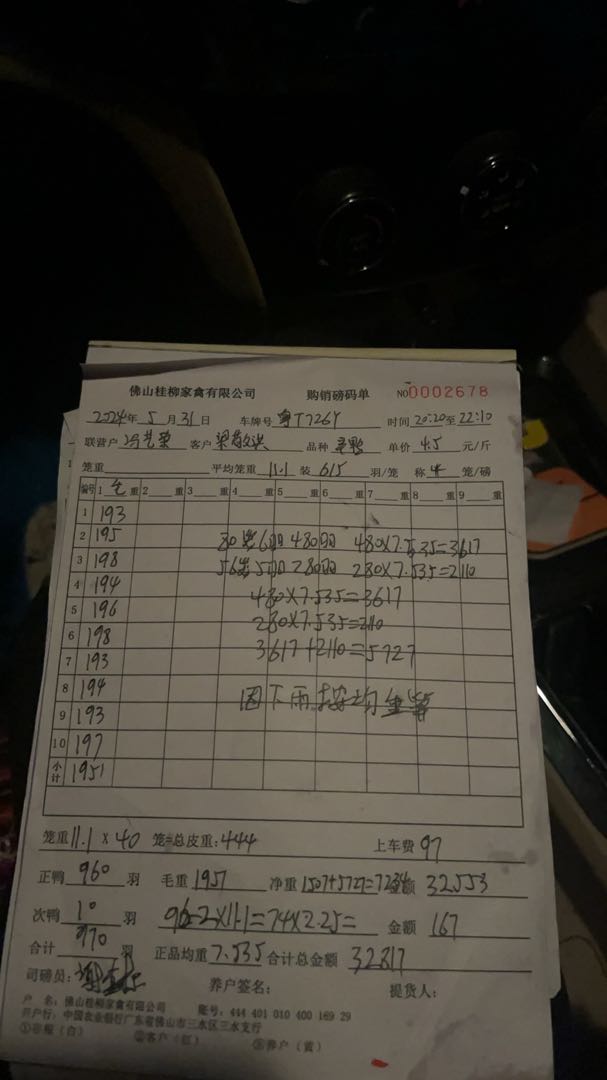 佛山桂柳家禽有限公司 购销磅码单 NO 0002678
2024年 5 月 31 日 车牌号 粤T726Y 时间 20:20至 22:10
联营户 客户 品种 单价 4.5 元/斤
笼重 平均笼重 11.1 装 6/5 羽/笼 称 4 笼/磅
编号 1 毛 重 2 重 3 重 4 重 5 重 6 重 7 重 8 重 9 重
1 193
2 195 80笼6羽 480羽 480X7.535=3617
3 198 56笼5羽 280羽 280X7.535=2110
4 194 480X7.535=3617
5 196 280X7.535=2110
6 198 3617+2110=5727
7 193
8 194 因下雨 按均重算
9 193
10 197
小计 1951
笼重 11.1 X 40 笼=总皮重:444 上车费 97
正鸭 960 羽 毛重 1951 净重 1507+5727=7234 金额 32553
次鸭 10 羽 96-2X11.1=74X2.25= 金额 167
合计 970 羽 正品均重 7.535 合计总金额 32817
司磅员: 养户签名: 提货人:
户 名:佛山桂柳家禽有限公司 账号:444 401 010 400 169 29
开户行:中国农业银行广东省佛山市三水区三水支行
①存根(白) ②客户(红) ③养户(黄)